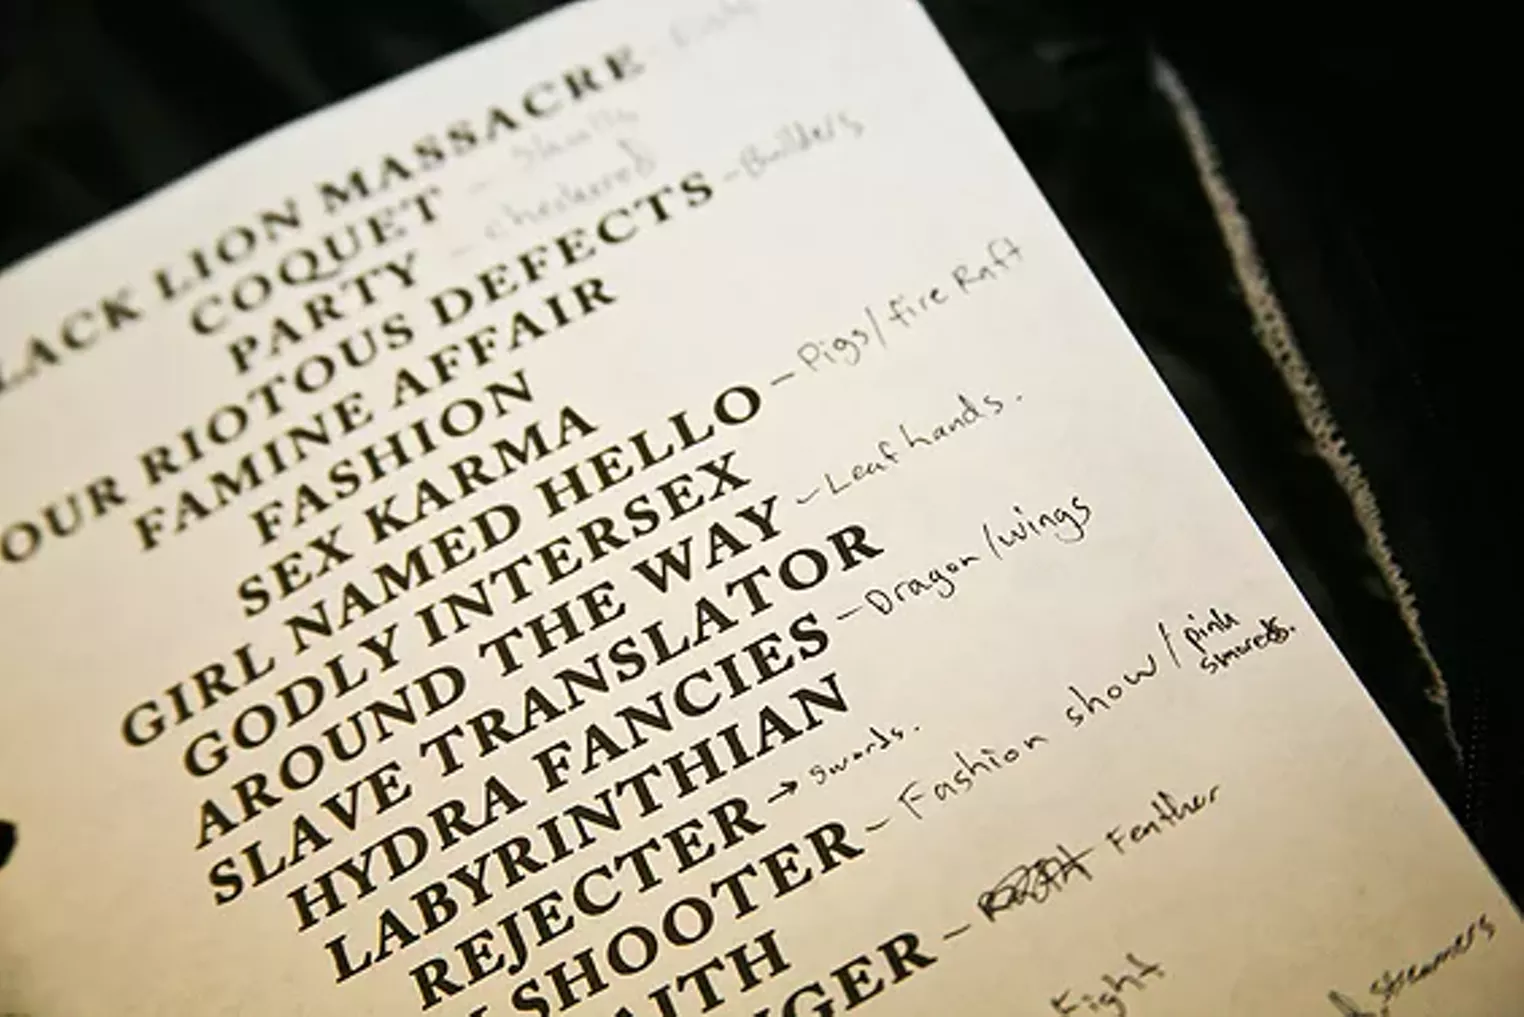 LACK LION MASSACRE -
COQUET - Shawls
PARTY - checkered
OUR RIOTOUS DEFECTS - Builders
FAMINE AFFAIR
FASHION
SEX KARMA
GIRL NAMED HELLO - Pigs/fire Raft
GODLY INTERSEX
AROUND THE WAY - Leaf hands.
SLAVE TRANSLATOR
HYDRA FANCIES - Dragon/wings
LABYRINTHIAN
REJECTER → swords.
SHOOTER - Fashion show/pink
AITH
NGER - Feather
Fight
streamers